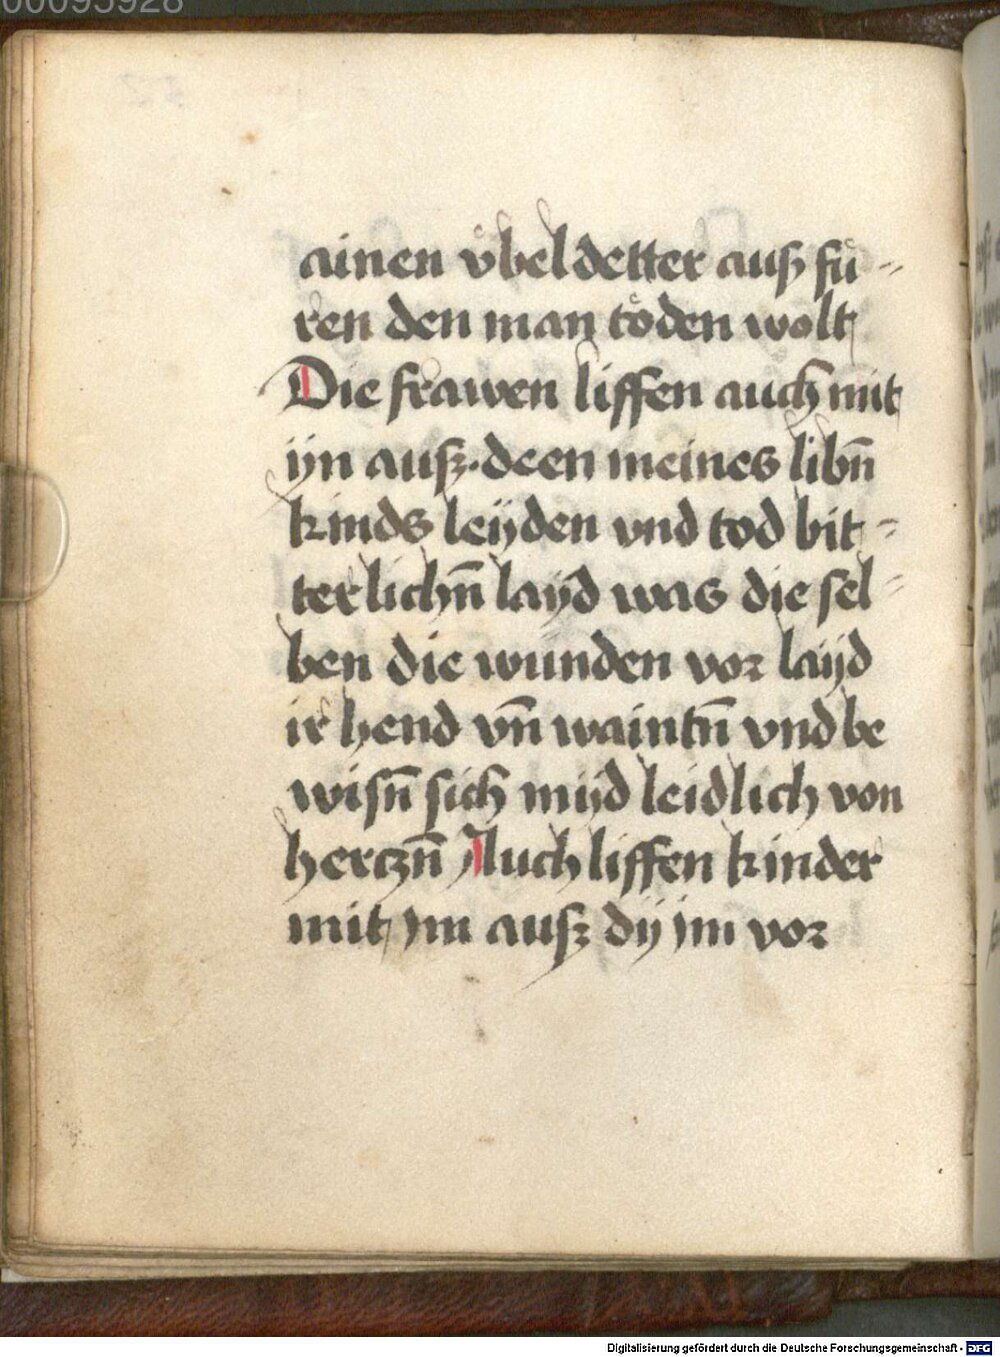 00095928
ainen vͤbeldetter auß fuͤ=
ren den man toͤden wolt
Die frawen liffen auch mit
ijn auß. deen meines libn̄
kinds leijden vnd tod bit=
terlichn̄ layd was die sel=
ben die wunden vor laijd
ir hend vn̄ waintn̄ vnd be
wisn̄ sich mijd leidlich von
herczn̄ Auch liffen kinder
mit im auß dij im vor
Digitalisierung gefördert durch die Deutsche Forschungsgemeinschaft - DFG